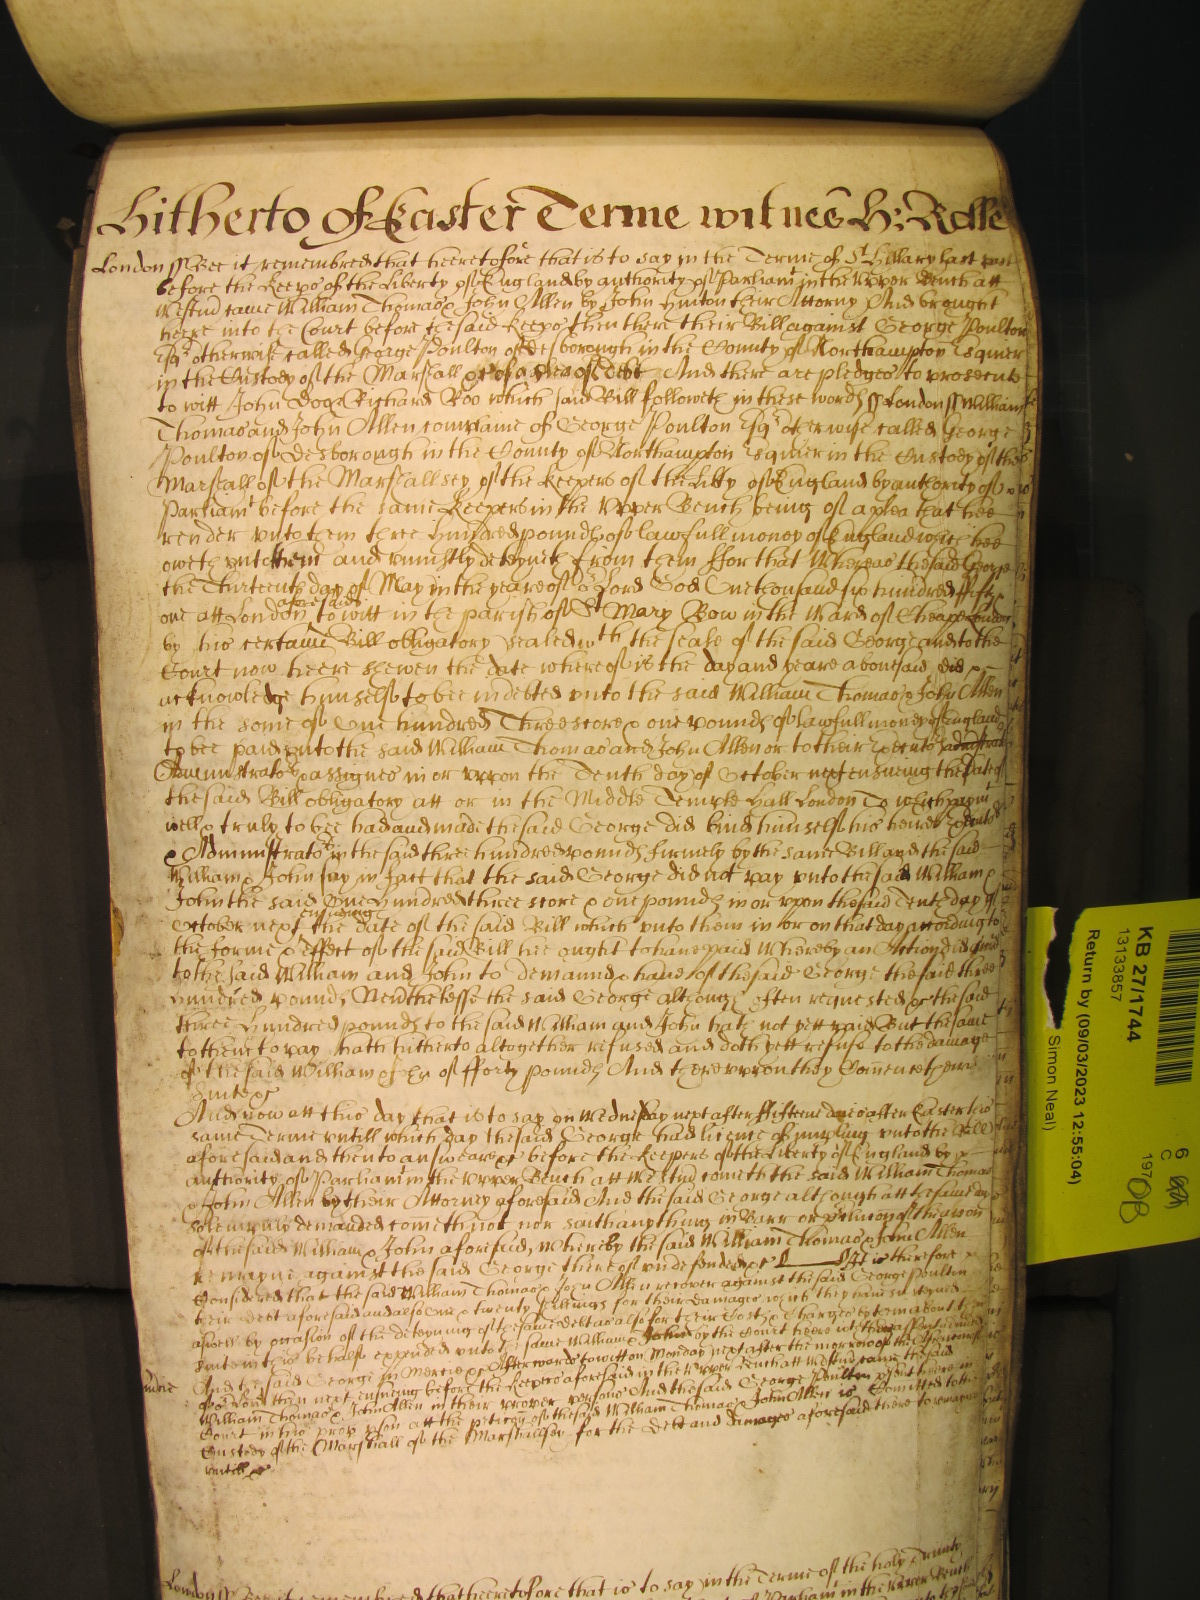 Hitherto of Easter Terme witnes H: Rolle
London ss Bee it remembred that heeretofore that is to say in the Terme of St Hillary last past
before the Keeps of the Liberty of England by authority of Parliamt in the Upper Bench att
Westmr came William Thomas & John Allen by John Hinton their Attorny And brought
heere into the Court before the said Keeps then there their Bill against George Poulton
Esqr otherwise called George Poulton of Desborough in the County of Northampton Esquier
in the Custody of the Marshall &c of a plea of Debt And there are pledges to prosecute
to witt John Doo & Richard Roo which said Bill followeth in these words ss London ss William
Thomas and John Allen complaine of George Poulton Esqr otherwise called George
Poulton of Desborough in the County of Northampton Esquier in the Custody of the
Marshall of the Marshallsey of the Keepers of the Libty of England by authority of
Parliamt before the same Keepers in the Upper Bench being of a plea that hee
render unto them three hundred pounds of lawfull money of England which hee
oweth unto them and uniustly deteyneth from them ffor that Whereas the said George
the Thirteenth day of May in the yeare of or Lord God One thousand six hundred fifty
one att London aforesaid to witt in the parish of St Mary Bow in the Ward of Cheape London
by his certaine Bill obligatory sealed wth the seale of the said George and to the
Court now heere shewen the date whereof is the day and yeare abovesaid did
acknowledge himself to bee indebted unto the said William Thomas & John Allen
in the some of One hundred Threescore & one pounds of lawfull money of England
to bee paid unto the said William Thomas and John Allen or to their
Administrators & assignes in or uppon the Tenth day of October next ensueing the date of
the said Bill obligatory att or in the Middle Temple Hall London To which paymt
well & truly to bee had and made the said George did bind himself his heires
& Administrators in the said three hundred pounds firmely by the same Bill and the said
William & John say in fact that the said George did not pay unto the said William &
John the said One hundred three score & one pounds in or upon the said Tenth day of
October next ensueing the date of the said Bill which unto them in or on that day according to
the forme & effect of the said Bill hee ought to have paid Whereby an Action did
to the said William and John to demaund & have of the said George the said three
hundred pounds Nevthelesse the said George although often requested &c the said
three hundred pounds to the said William and John hath not yett paid But the same
to them to pay hath hitherto altogether refused and doth yett refuse to the damage
of the said William & John of fforty pounds And thereuppon they
Suite &c
And now att this day that is to say on Wednesday next after ffifteene daies after Easter this
same Terme untill which day the said George had licence of impling unto the Bill
aforesaid and then to answeare &c before the Keepers of the Liberty of England by
authority of Parliamt in the Upper Bench att Westmr cometh the said William Thomas
& John Allen by their Attorney aforesaid And the said George although att the same day
solempnly demanded cometh not nor saith anything in Barr or
of the said William & John aforesaid, whereby the said William Thomas & John Allen
remayne against the said George thereof undefended &c It is therefore
Considered that the said William Thomas & John Allen recover against the said George Poulton
their Debt aforesaid and also One & twenty shillings for their damages which they have susteyned
aswell by occasion of the deteyning of the same debt as also for their Costs & Charges by them about their
Suite in this behalf expended unto the same William & John by the Court heere
And the said George in Mercie &c Afterwards to witt on Monday next after the morrow of the Ascencon
of or Lord then next ensueing before the Keepers aforesaid in the Upper Bench att Westmr came the said
William Thomas & John Allen in their proper persons And the said George Poulton
Court in his prop pson att the peticon of the said William Thomas & John Allen is Comitted to the
Custody of the Marshall of the Marshallsey for the Debt and damages aforesaid there to remayne
untill &c
London ss Bee it remembred that heeretofore that is to say in the Terme of the holy Trinity
KB 27/1744
13133857
Return by (09/03/2023 12:55:04)
Simon Neal)
6
C